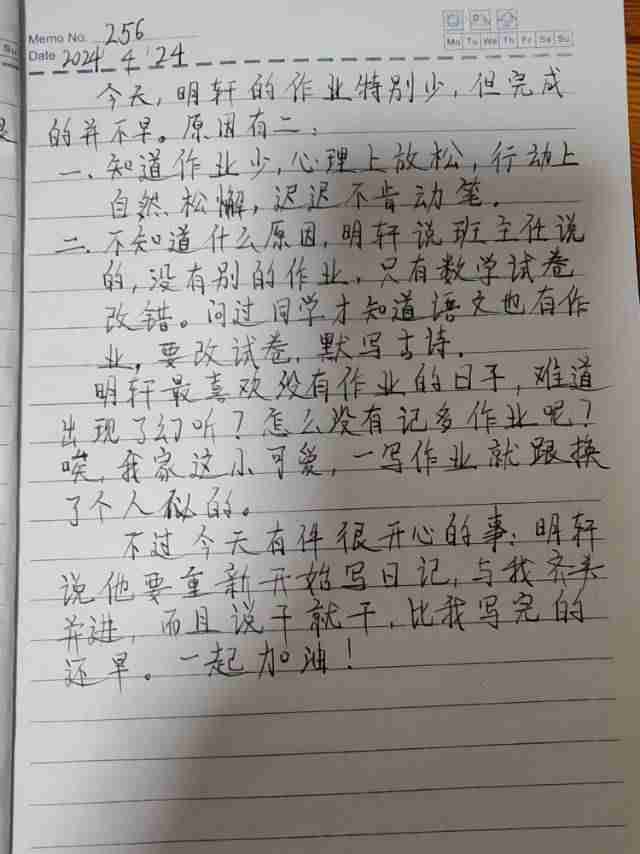 Memo No. 256
Mo Tu We Th Fr Sa Su
Date 2024 4 24
今天，明轩的作业特别少，但完成
的并不早。原因有二：
一、知道作业少，心理上放松，行动上
自然松懈，迟迟不肯动笔。
二、不知道什么原因，明轩说班主任说
的，没有别的作业，只有数学试卷
改错。问过同学才知道语文也有作
业，要改试卷，默写古诗。
明轩最喜欢没有作业的日子，难道
出现了幻听？怎么没有记多作业呢？
唉，我家这小可爱，一写作业就跟换
了个人似的。
不过今天有件很开心的事：明轩
说他要重新开始写日记，与我齐头
并进，而且说干就干，比我写完的
还早。一起加油！
Su